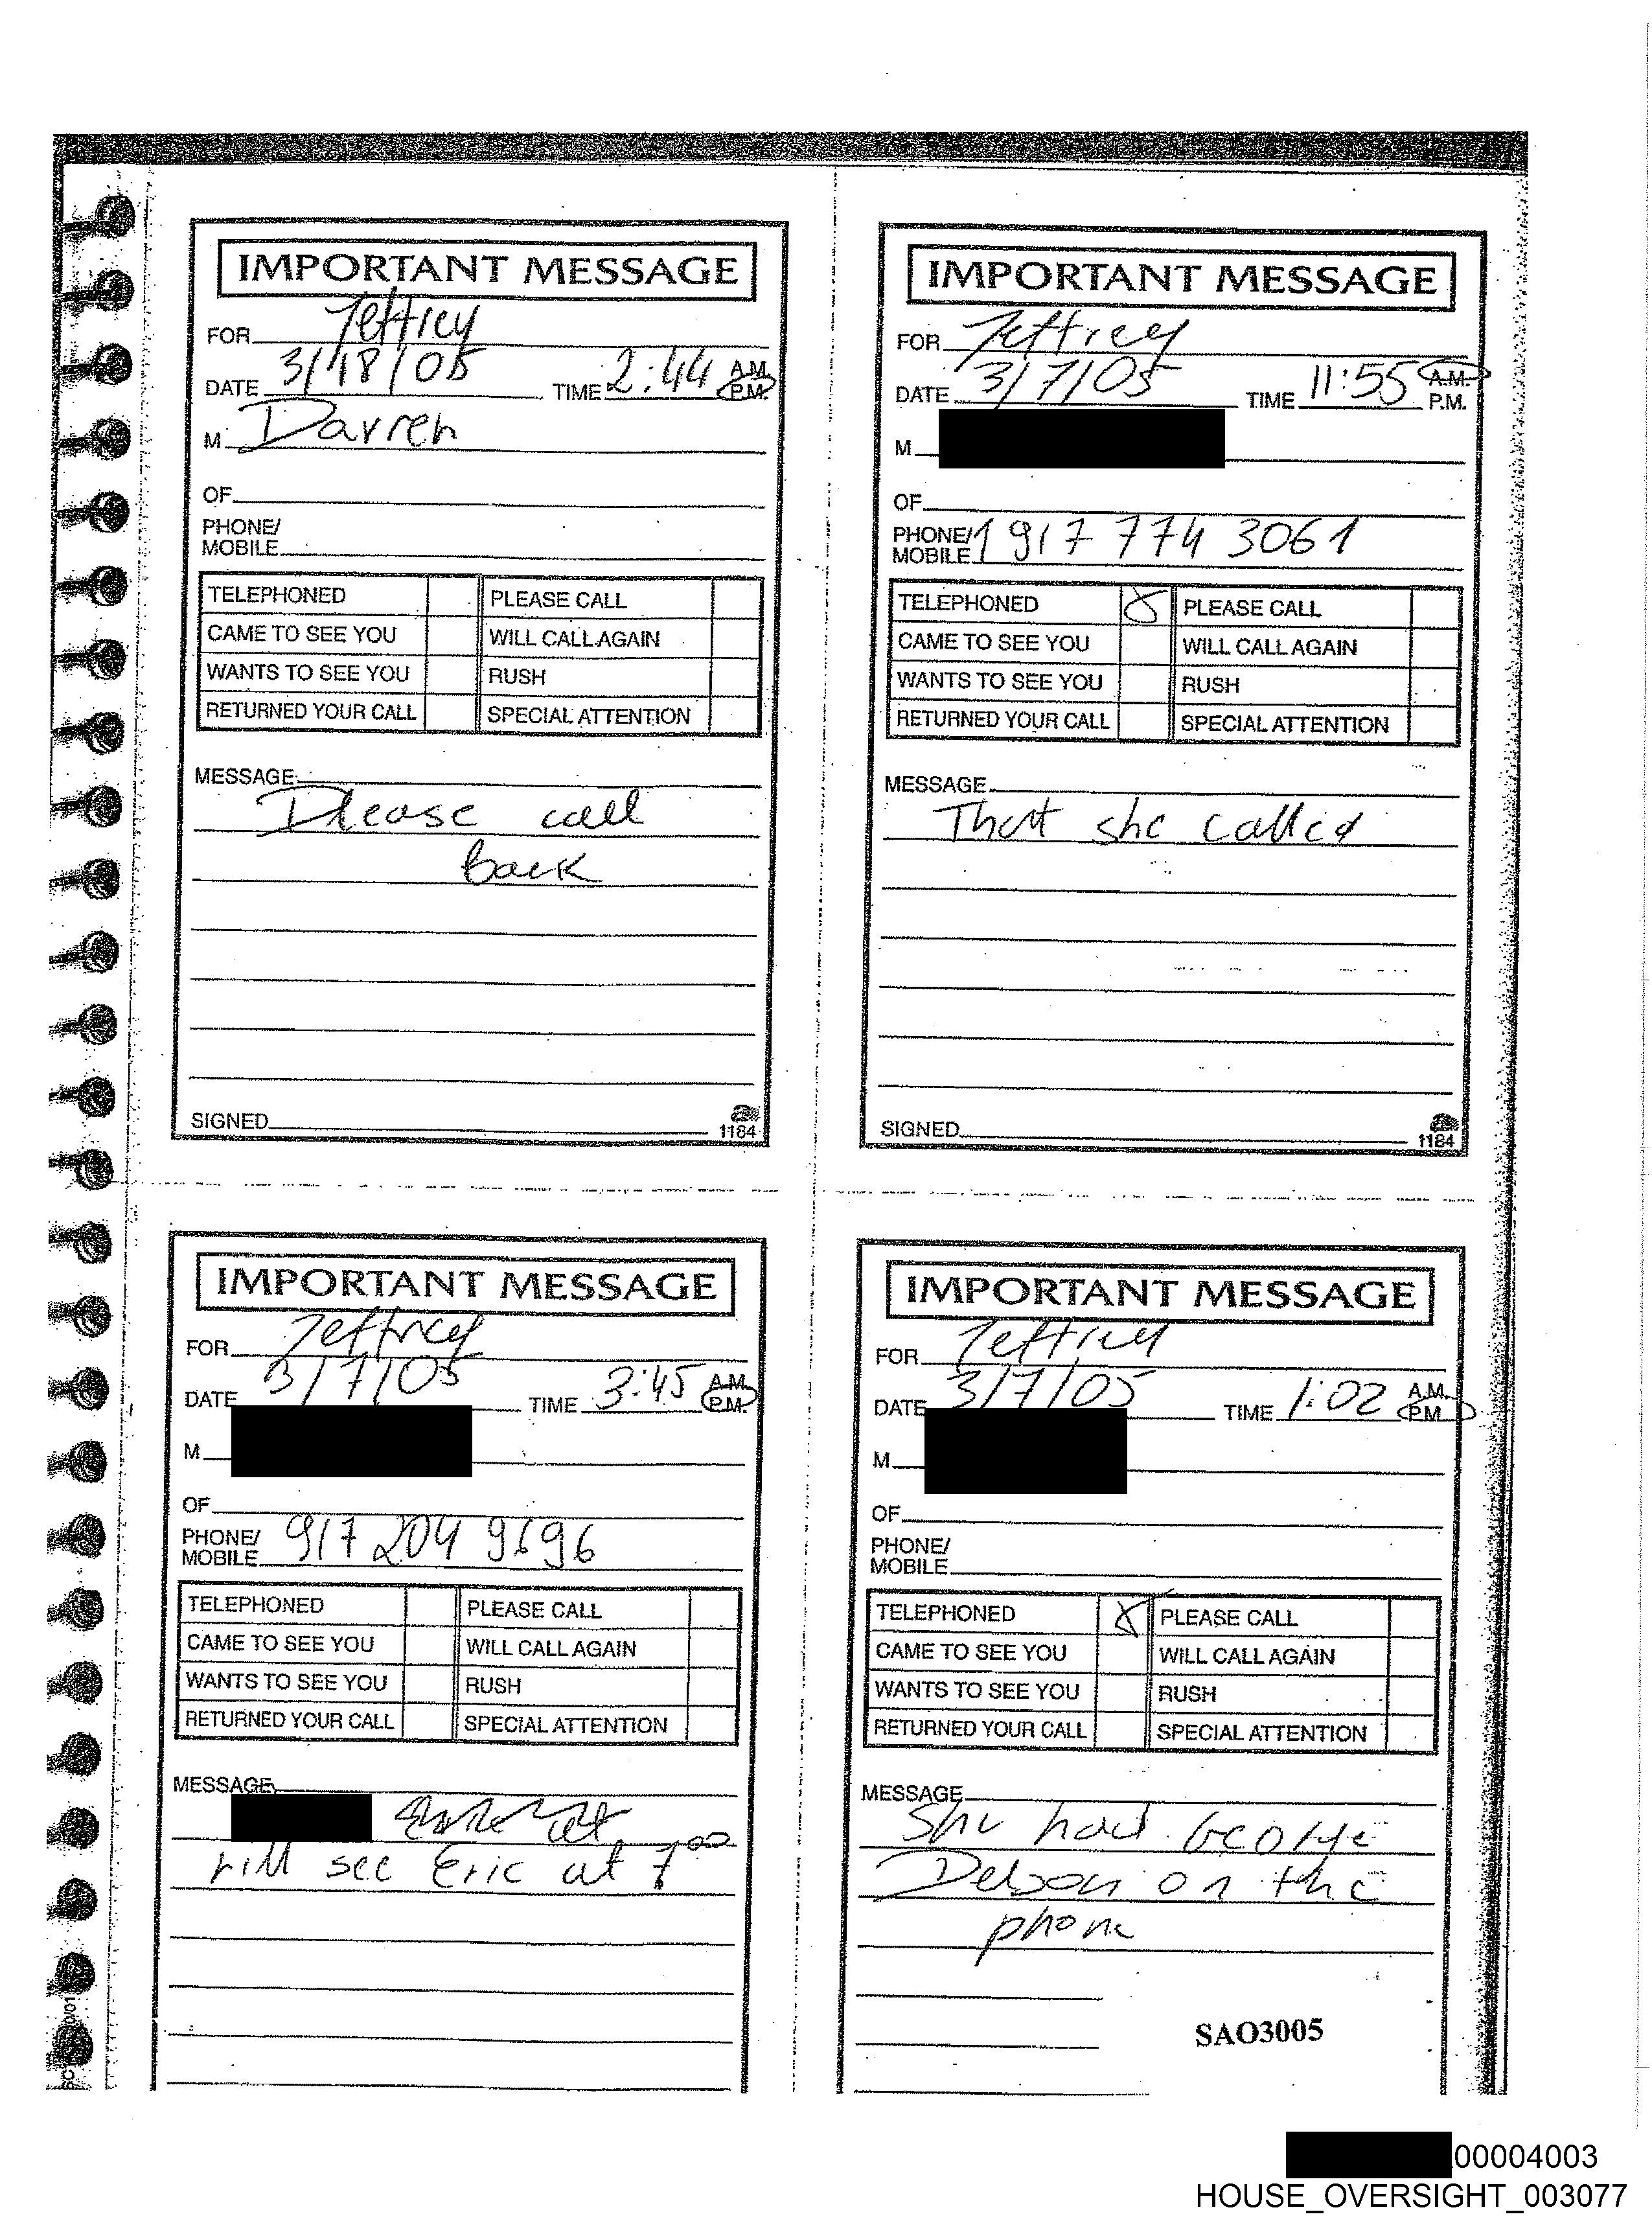 IMPORTANT MESSAGE
FOR Jeffrey
DATE 3/18/05 TIME 2:44 A.M. P.M.
M Darren
OF
PHONE/
MOBILE
TELEPHONED PLEASE CALL
CAME TO SEE YOU WILL CALL AGAIN
WANTS TO SEE YOU RUSH
RETURNED YOUR CALL SPECIAL ATTENTION
MESSAGE
Please call
back
SIGNED
1184
IMPORTANT MESSAGE
FOR Jeffrey
DATE 3/7/05 TIME 11:55 A.M. P.M.
M
OF
PHONE/
MOBILE 1 917 774 3061
TELEPHONED X PLEASE CALL
CAME TO SEE YOU WILL CALL AGAIN
WANTS TO SEE YOU RUSH
RETURNED YOUR CALL SPECIAL ATTENTION
MESSAGE
That she called
SIGNED
1184
IMPORTANT MESSAGE
FOR Jeffrey
DATE 3/7/05 TIME 3:45 A.M. P.M.
M
OF
PHONE/
MOBILE 917 204 9696
TELEPHONED PLEASE CALL
CAME TO SEE YOU WILL CALL AGAIN
WANTS TO SEE YOU RUSH
RETURNED YOUR CALL SPECIAL ATTENTION
MESSAGE
will see Eric at 7 00
IMPORTANT MESSAGE
FOR Jeffrey
DATE 3/7/05 TIME 1:02 A.M. P.M.
M
OF
PHONE/
MOBILE
TELEPHONED X PLEASE CALL
CAME TO SEE YOU WILL CALL AGAIN
WANTS TO SEE YOU RUSH
RETURNED YOUR CALL SPECIAL ATTENTION
MESSAGE
She had George
on the
phone
SAO3005
00004003
HOUSE_OVERSIGHT_003077